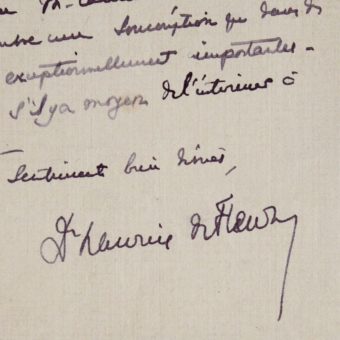 une souscription que dans des
exceptionnellement importantes -
s'il y a moyen de l'intéresser à
Sentiment bien dévoués,
Dr Maurice de Fleury